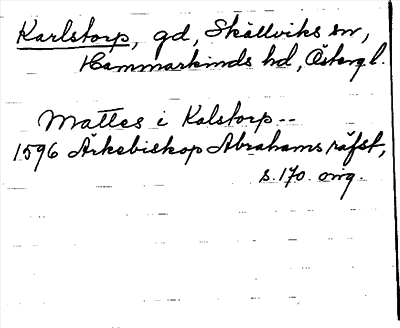 Karlstorp, gd, Skällviks sn,
Hammarkinds hd, Östergl.
Mattes i Kalstorp --
1596 Ärkebiskop Abrahams räfst,
s. 170. orig.